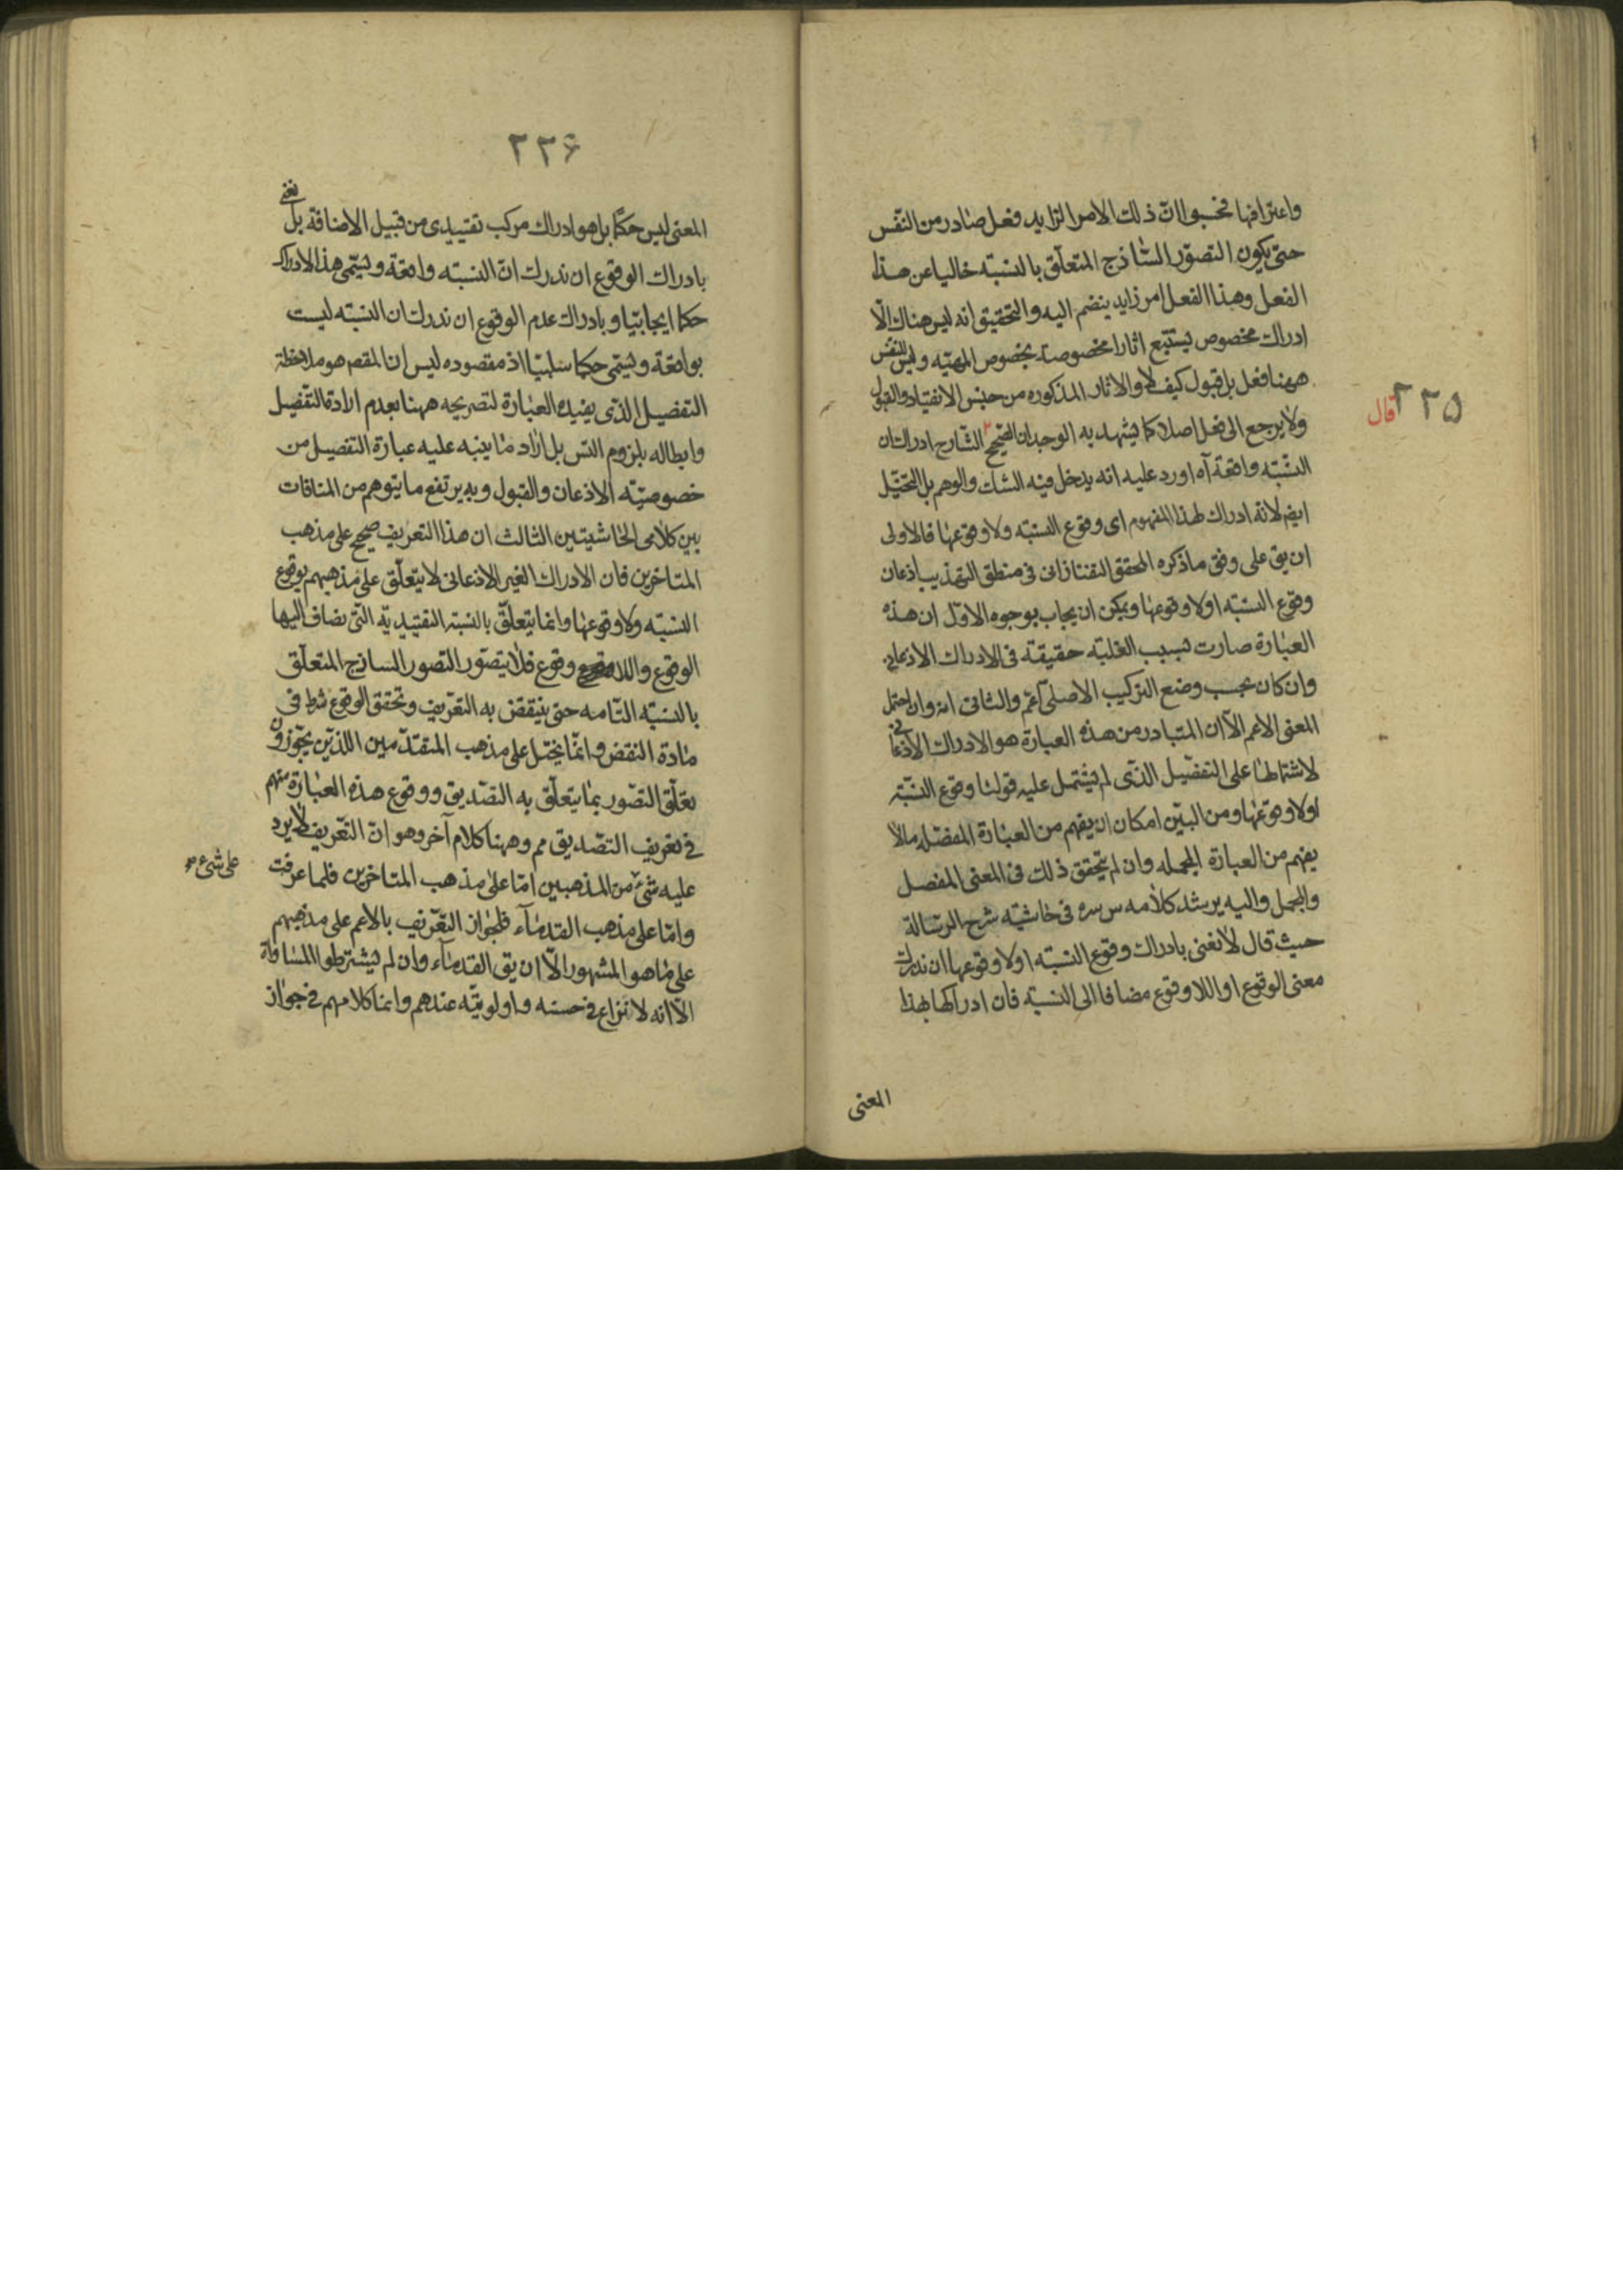 واعترافها فحسبوا ان ذلك الامر الزايد فعل صادر من النفس
حتى يكون التصور الساذج المتعلق بالنسبة خاليا عن هذا
الفعل وهذا الفعل امر زايد ينضم اليه والتحقيق انه ليس هناك الا
ادراك مخصوص يستتبع اثارا مخصوصة بخصوص المهية وليس للنفس
ههنا فعل بل قبول كيف لا والاثار المذكوره من جنس الانقياد والقبول
٢٢٥ قال
ولا يرجع الى فعل اصلا كما يشهد به الوجدان الصحيح الشارح ادراك ان
النسبة واقعة آه اورد عليه انه يدخل فيه الشك والوهم بل التخيل
ايضا لانه ادراك لهذا المفهوم اى وقوع النسبة ولا وقوعها فالاولى
ان يق على وفق ما ذكره المحقق التفتازانى فى منطق التهذيب اذعان
وقوع النسبة اولا وقوعها ويمكن ان يجاب بوجوه الاول ان هذه
العبارة صارت بسبب الغلبة حقيقة فى الادراك الاذعانى
وان كان بحسب وضع التركيب الاصلى اعم والثانى انه وان احتمل
المعنى الاعم الا ان المتبادر من هذه العبارة هو الادراك الاذعانى
لاشتمالها على التفصيل الذى لم يشتمل عليه قولنا وقوع النسبة
اولا وقوعها ومن البين امكان ان يفهم من العبارة المفصله مالا
يفهم من العبارة المجمله وان لم يتحقق ذلك فى المعنى المفصل
والمجمل واليه يرشد كلامه س سره فى حاشية شرح الرسالة
حيث قال لا نعنى بادراك وقوع النسبة اولا وقوعها ان ندرك
معنى الوقوع او اللا وقوع مضافا الى النسبة فان ادراكها بهذا
المعنى
٢٢۶
المعنى ليس حكما بل هو ادراك مركب تقييدى من قبيل الاضافة بل نعنى
بادراك الوقوع ان ندرك ان النسبة واقعة ويسمى هذا الادراك
حكما ايجابيا وبادراك عدم الوقوع ان ندرك ان النسبة ليست
بواقعة ويسمى حكما سلبيا اذ مقصوده ليس ان المقصم هو ملاحظة
التفصيل الذى يفيده العبارة لتصريحه ههنا بعدم ارادة التفصيل
وابطاله بلزوم التس بل اراد ما ينبه عليه عبارة التفصيل من
خصوصية الاذعان والقبول وبه يرتفع ما يتوهم من المنافات
بين كلامى الحاشيتين الثالث ان هذا التعريف صحيح على مذهب
المتاخرين فان الادراك الغير الاذعانى لا يتعلق على مذهبهم بوقوع
النسبة ولا وقوعها وانما يتعلق بالنسبة التقييدية التى يضاف اليها
الوقوع واللا وقوع فلا يتصور التصور الساذج المتعلق
بالنسبة التامه حتى ينتقض به التعريف وتحقق الوقوع شرط فى
مادة النقض وانما يختل على مذهب المتقدمين اللذين يجوزون
تعلق التصور بما يتعلق به التصديق ووقوع هذه العبارة منهم
فى تعريف التصديق مم وههنا كلام آخر وهو ان التعريف لا يرد
على شىء
عليه شىء من المذهبين اما على مذهب المتاخرين فلما عرفت
واما على مذهب القدماء فلجواز التعريف بالاعم على مذهبهم
على ما هو المشهور الا ان يق القدماء وان لم يشترطوا المساواة
الا انه لا نزاع فى حسنه واولويته عندهم وانما كلامهم فى جواز